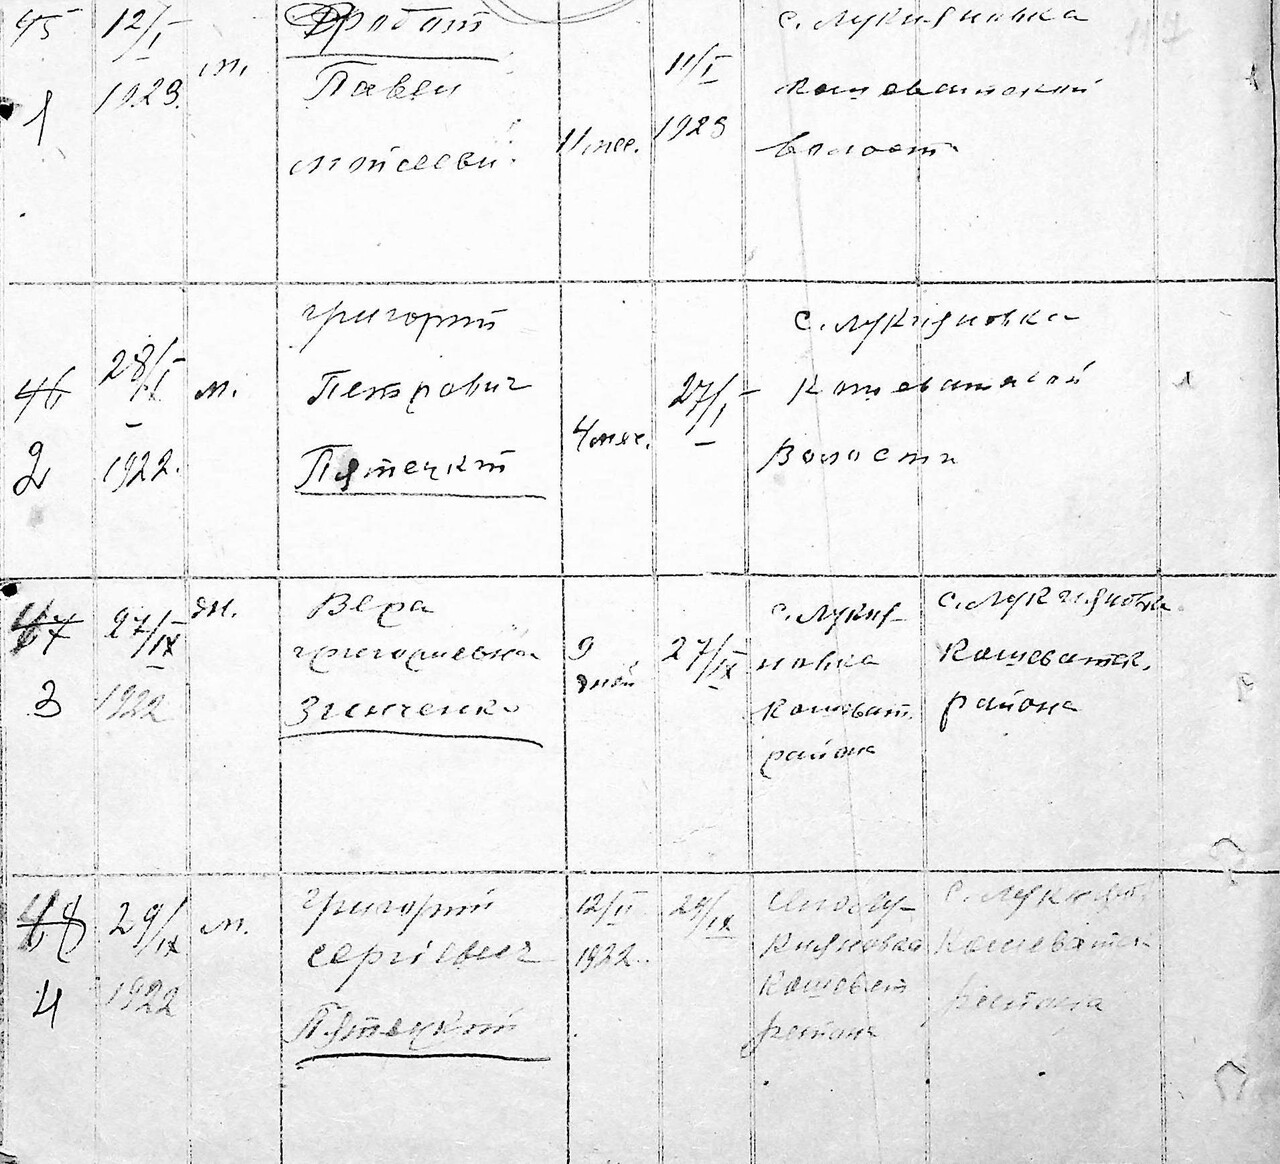 45
12/I
1923.
1
м.
Дробот
Павел
Мойсееви
11 мес.
11/I
1923
с. Лукияновка
Кошеватской
волости
46
28/I
1922.
2
м.
Григорий
Петрович
Пятецкий
4 мес.
27/I
с. Лукияновка
Кошеватской
Волости
47
27/IX
1922
3
ж.
Вера
Григориевна
Зинченко
9
дней
27/IX
с. Лукия-
новка
Кошеват.
района
с. Лукияновка
Кошеватск.
района
48
29/IX
1922
4
м.
Григорий
Сергиевич
Пятецкий
12/II
1922.
29/IX
Село Лу-
кияновка
Кошеват
район
с. Лукиянов
Кошеватск
района